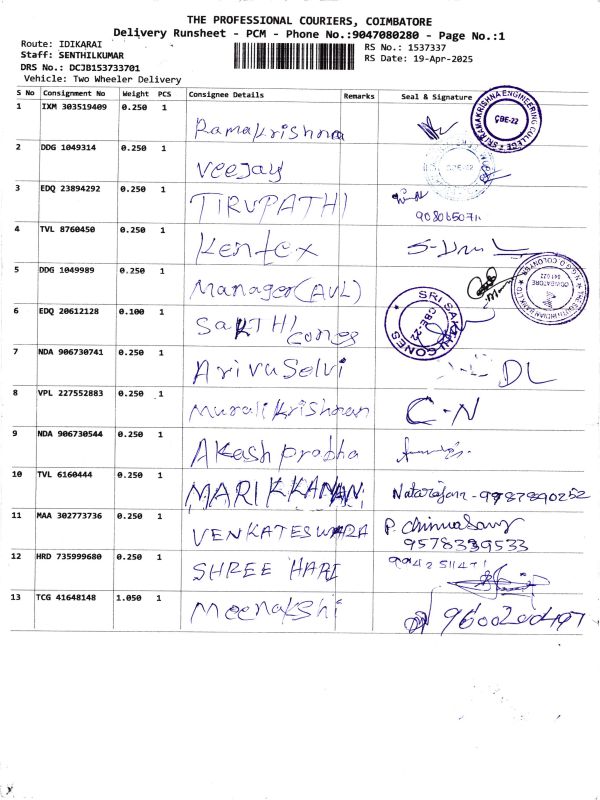 THE PROFESSIONAL COURIERS, COIMBATORE
Delivery Runsheet - PCM - Phone No.:9047080280 - Page No.:1
Route: IDIKARAI
RS No.: 1537337
Staff: SENTHILKUMAR
RS Date: 19-Apr-2025
DRS No.: DCJB153733701
Vehicle: Two Wheeler Delivery
S No Consignment No Weight PCS Consignee Details Remarks Seal & Signature
1 IXM 303519409 0.250 1 Ramakrishna
SRI RAMAKRISHNA ENGINEERING COLLEGE CBE-22
2 DDG 1049314 0.250 1 Veejay
3 EDQ 23894292 0.250 1 TIRUPATHI
4 TVL 8760450 0.250 1 Kentex
5 DDG 1049989 0.250 1 Manager(AVL)
COIMBATORE 641 022
6 EDQ 20612128 0.100 1 SAKTHI cones
SRI SAKTHI CONES CBE-22
7 NDA 906730741 0.250 1 Arivuselvi DL
8 VPL 227552883 0.250 1 Muralikrishnan C-N
9 NDA 906730544 0.250 1 Akash prabha
10 TVL 6160444 0.250 1 MARIKKANAN Natarajan-9787890252
11 MAA 302773736 0.250 1 VENKATESWARA P. Chinnasamy
9578339533
12 HRD 735999680 0.250 1 SHREE HARI
13 TCG 41648148 1.050 1 Meenakshi